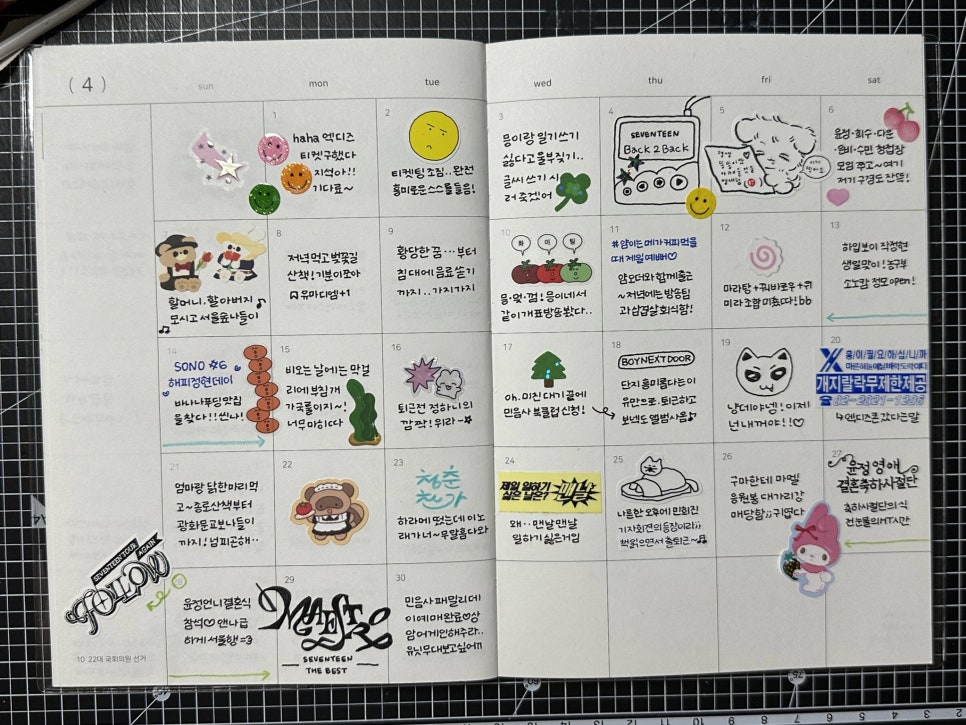 ( 4 )
sun
mon
tue
wed
thu
fri
sat
1
haha 엑디즈
티켓구했다
지석아!!
기다료~
2
티켓팅 초짐.. 완전
흥미로운 스스톨 들음!
3
믕이랑 일기쓰기
싫다고 울부짖기..
글씨 쓰기 시
러 죽겠어
4
SEVENTEEN
Back 2 Back
5
6
윤정·희수·다운
·은비·수민 청첩장
모임 쭈고~ 여기
저기 구경도 잔뜩!
7
할머니, 할아버지
모시고 서울숲나들이
8
저녁먹고 벚꽃길
산책! 기분이 쪼아
9
황당한 꿈…부터
침대에 음료 쏟기
까지.. 가지가지
10
화
이
팅
같이 개표방송봤다..
11
#얌이는 메가커피먹을
때 제일 예뻐♡
얌오더와 함께 출근
~저녁에는 방송팀
과 삼겹살 회식함!
12
마라탕+꿔바로우+쿼
미라 조합 미쵸따! bb
13
하입보이 작정현
생일맞이! 농구부
소노캄 정모 open!
14
SONO ☆6
해피정현데이
바나나푸딩맛집
을 찾다!! 씐나!
15
비오는 날에는 막걸
리에 부침개
가 국룰이지~!
너무 마히따
16
퇴근전 정하니의
깜짝! 위라-☆
17
oh. 미친 대기 끝에
민음사 북클럽 신청!
18
BOYNEXTDOOR
단지 흥미롭다는 이
유만으로.. 퇴근하고
보넥도 앨범사옴♪
19
냥데야넴! 이제!
넌 내꺼야!!♡
20
홍이필요하십니까
개지랄락무제한제공
☎ 02-2021-1206
↳엑디즈콘 갔다는 말
21
엄마랑 닭한마리먹
고~ 종로산책부터
광화문교보나들이
까지! 넘피곤해..
22
23
청춘
찬가
하라메 떴는데 이 노
래가 너~무 말춤하다와
24
제일 일하기
싫은 날은?
맨날
왜.. 맨날맨날
일하기 싫은거임
25
나른한 오후에 민희진
기자회견의 등장이라;;
책읽으면서 출퇴근~♬
26
구마한테 마멜
응원봉 대가리강
매당함;; 귀엽다
27
윤정 영애
결혼축하사절단
축하사절단의 식
전 눈물의 MT시간
SEVENTEEN TOUR
AGAIN
28
윤정언니결혼식
참석♡ 앤나 급
하게 서울행 =3
29
MAESTRO
SEVENTEEN
THE BEST
30
민음사 패밀리데
이 예매완료♡ 상
암 어게인해주라..
유닛무대보고싶어ㅠ
10 22대 국회의원 선거